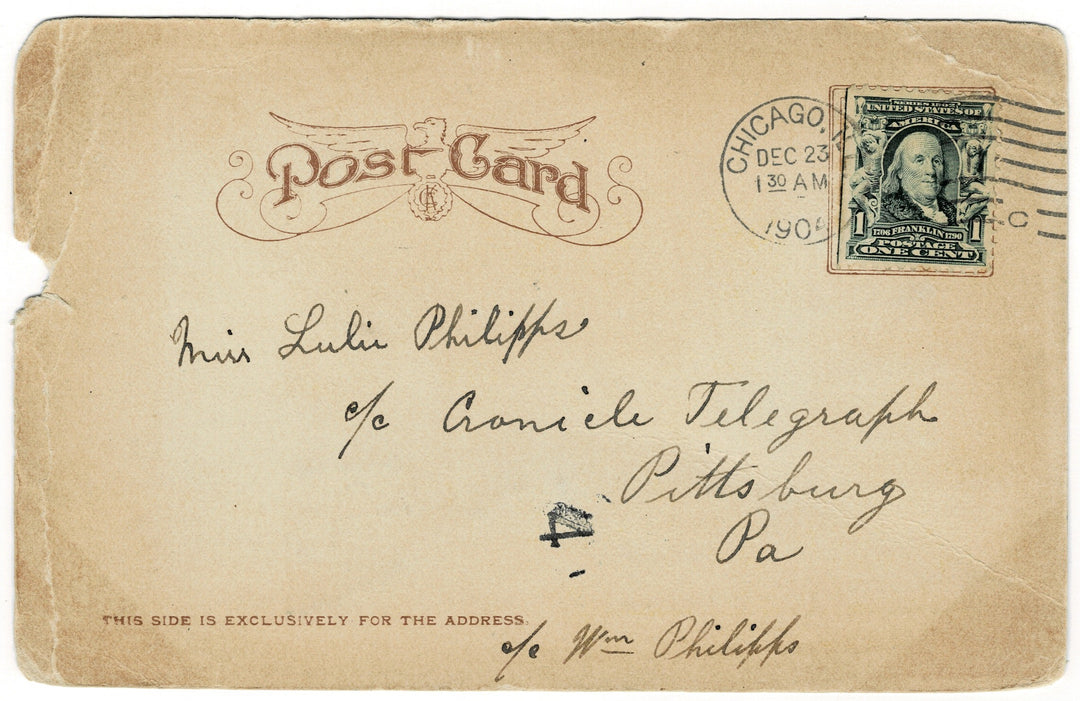 Post Card
CHICAGO, ILL
DEC 23
1 30 AM
1904
SERIES 1902
UNITED STATES OF
AMERICA
1 1706 FRANKLIN 1790 1
POSTAGE
ONE CENT
C
Miss Lulu Philipps
c/c Cronicle Telegraph
Pittsburg
Pa
4
THIS SIDE IS EXCLUSIVELY FOR THE ADDRESS.
c/c Wm Philipps